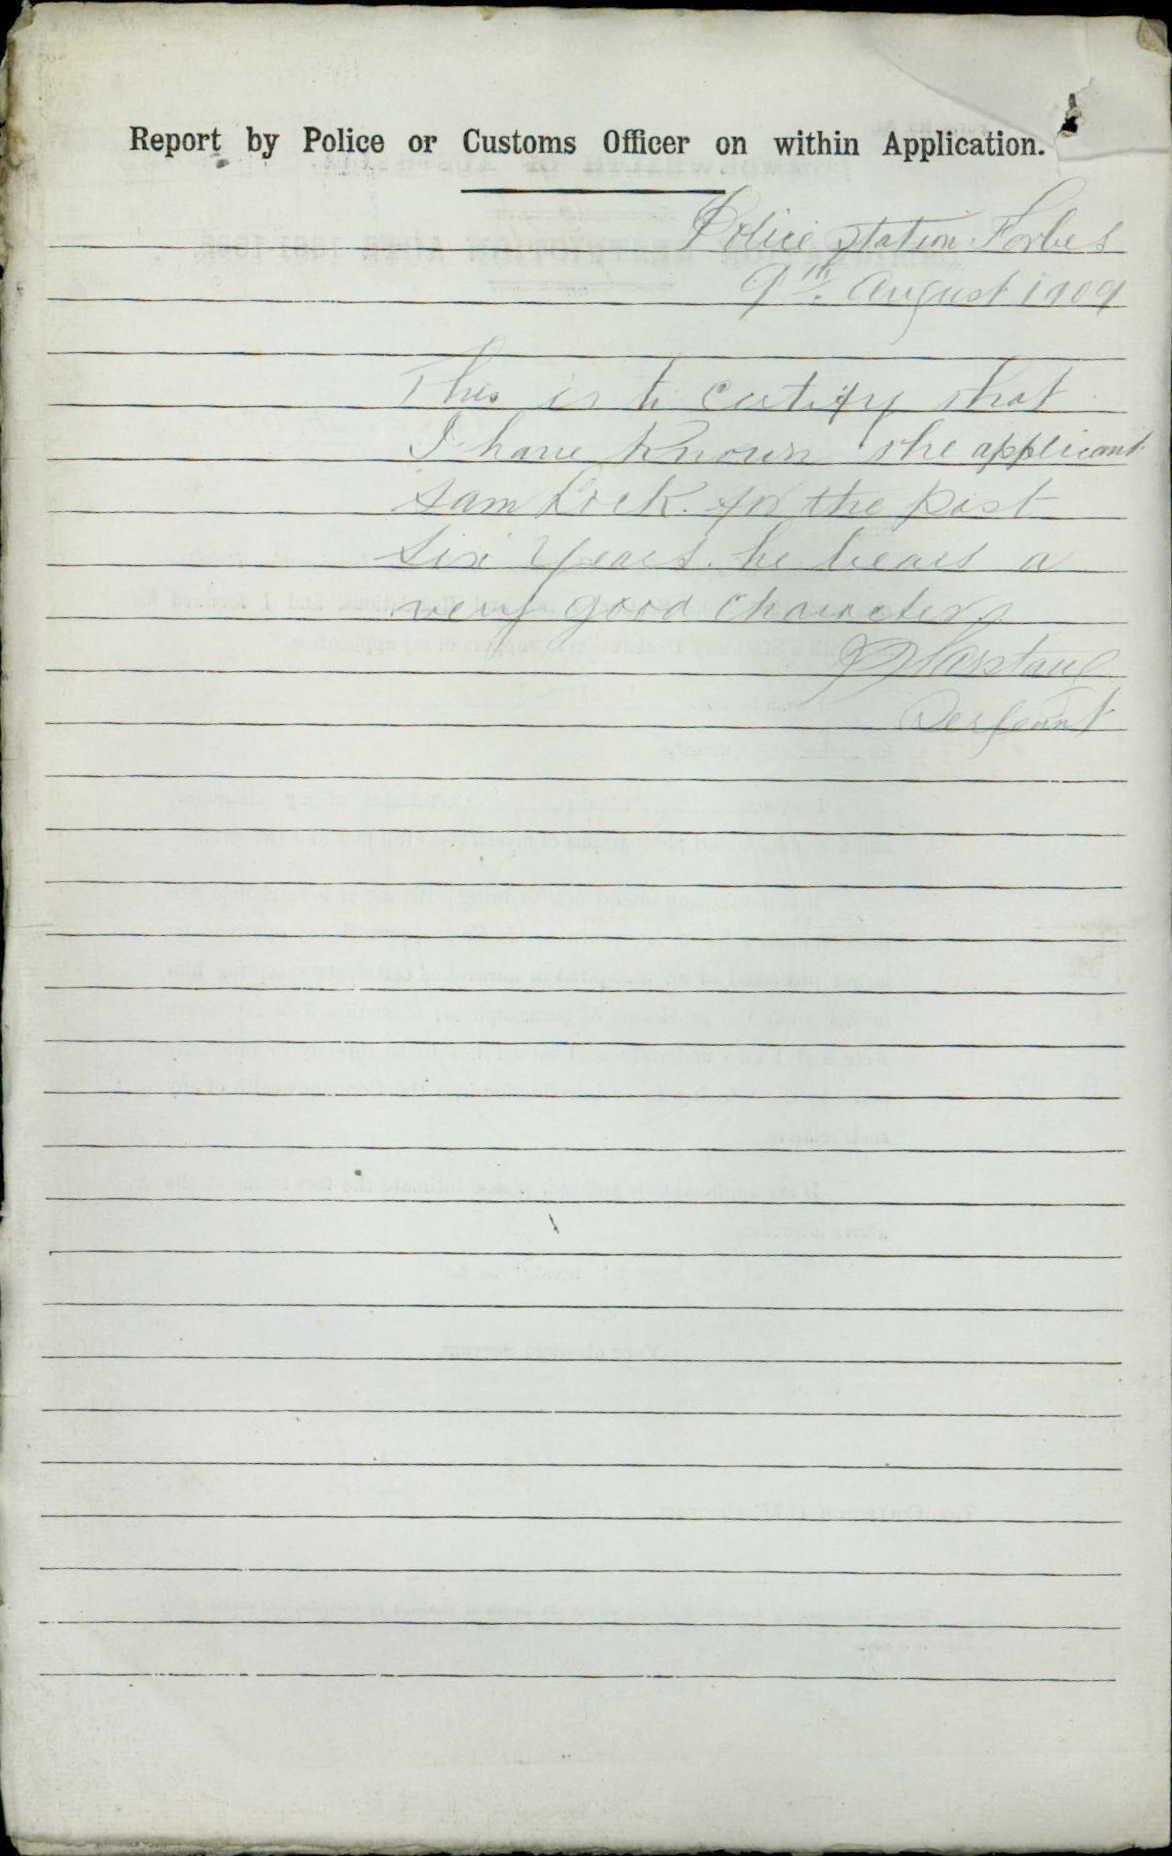 Report by Police or Customs Officer on within Application.
Police Station Forbes
9th. August 1909
This is to certify that
I have known the applicant
Sam Lock for the past
Six Years. he bears a
very good character
Sergeant